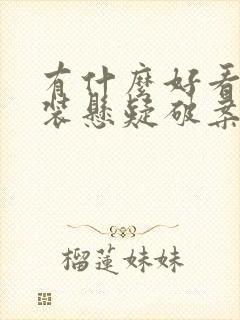 有什麼好看
裝懸疑破案
榴蓮妹妹